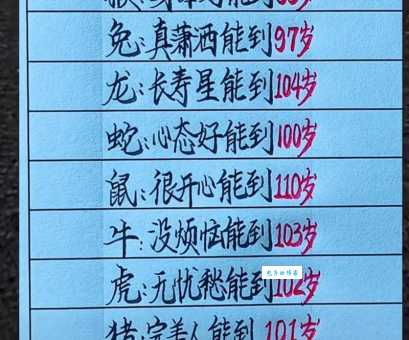 兔:真潇洒能到97岁
龙:长寿星能到104岁
蛇:心态好能到100岁
鼠:很开心能到110岁
牛:没烦恼能到103岁
虎:无忧愁能到102岁
猪:完美人能到101岁